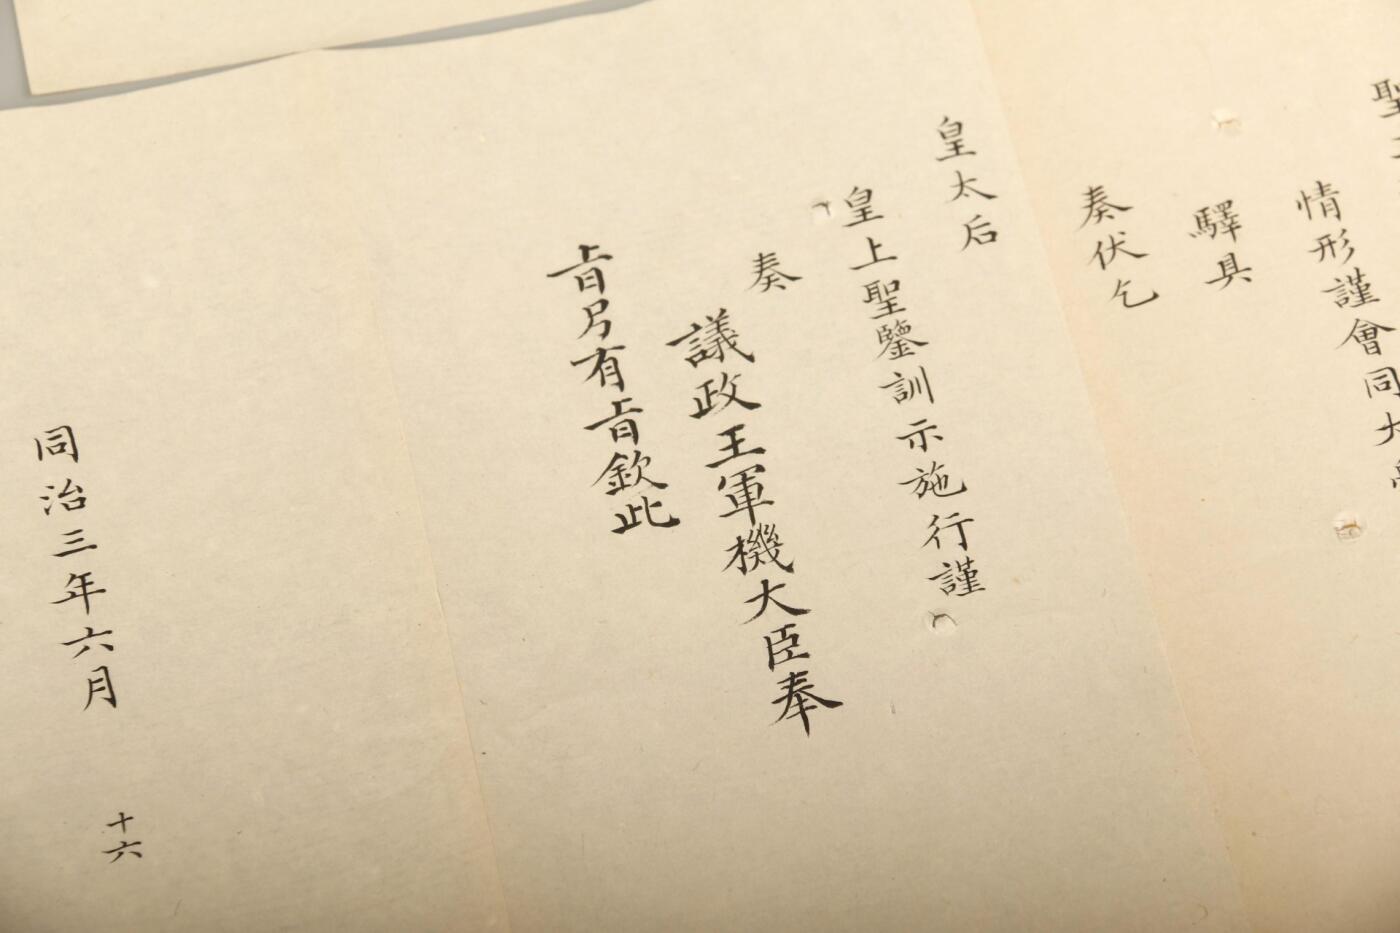 聖
情形謹會同大
驛具
奏伏乞
皇太后
皇上聖鑒訓示施行謹
奏
議政王軍機大臣奉
旨另有旨欽此
同治三年六月 十六